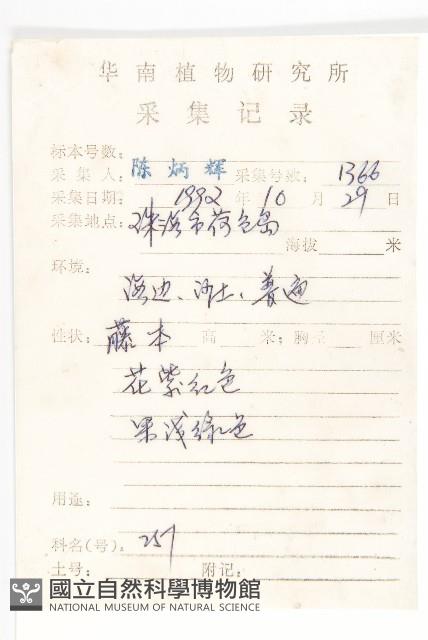 华南植物研究所
采集记录
标本号数:
采集人: 陈炳辉 采集号数: 1366
采集日期: 1992年10月29日
采集地点: 珠海市荷包岛
海拔 米
环境:
海边、沙土、普遍
性状: 藤本 高 米; 胸 厘米
花紫红色
果浅绿色
用途:
科名(号): 257
土号: 附记:
國立自然科學博物館
NATIONAL MUSEUM OF NATURAL SCIENCE